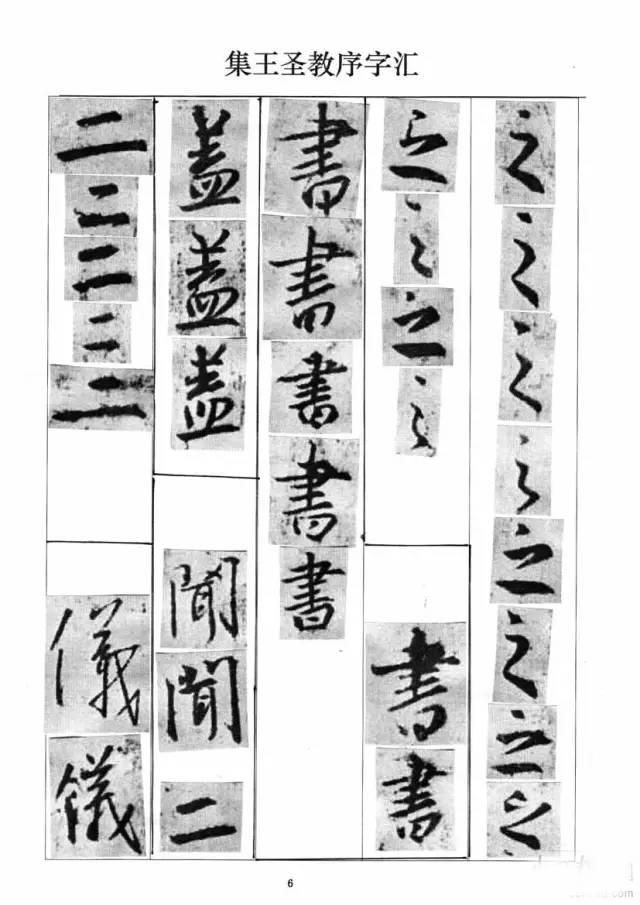 集王圣教序字汇
之之之之之之之之
之之之之
書書
書書書書書
蓋蓋蓋
聞聞
二
二二二二二
儀儀
6